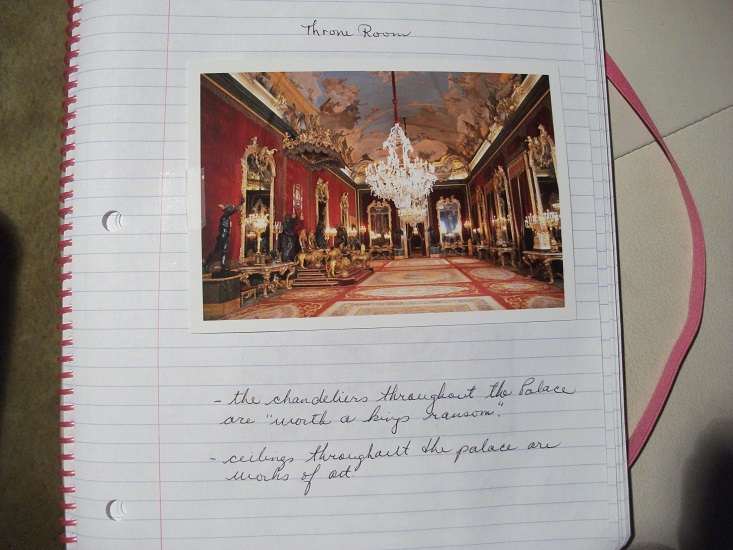 Throne Room
- the chandeliers throughout the Palace
are "worth a kings ransom".
- ceilings throughout the palace are
works of art.